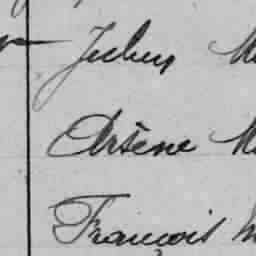 Julien
Arsène
François